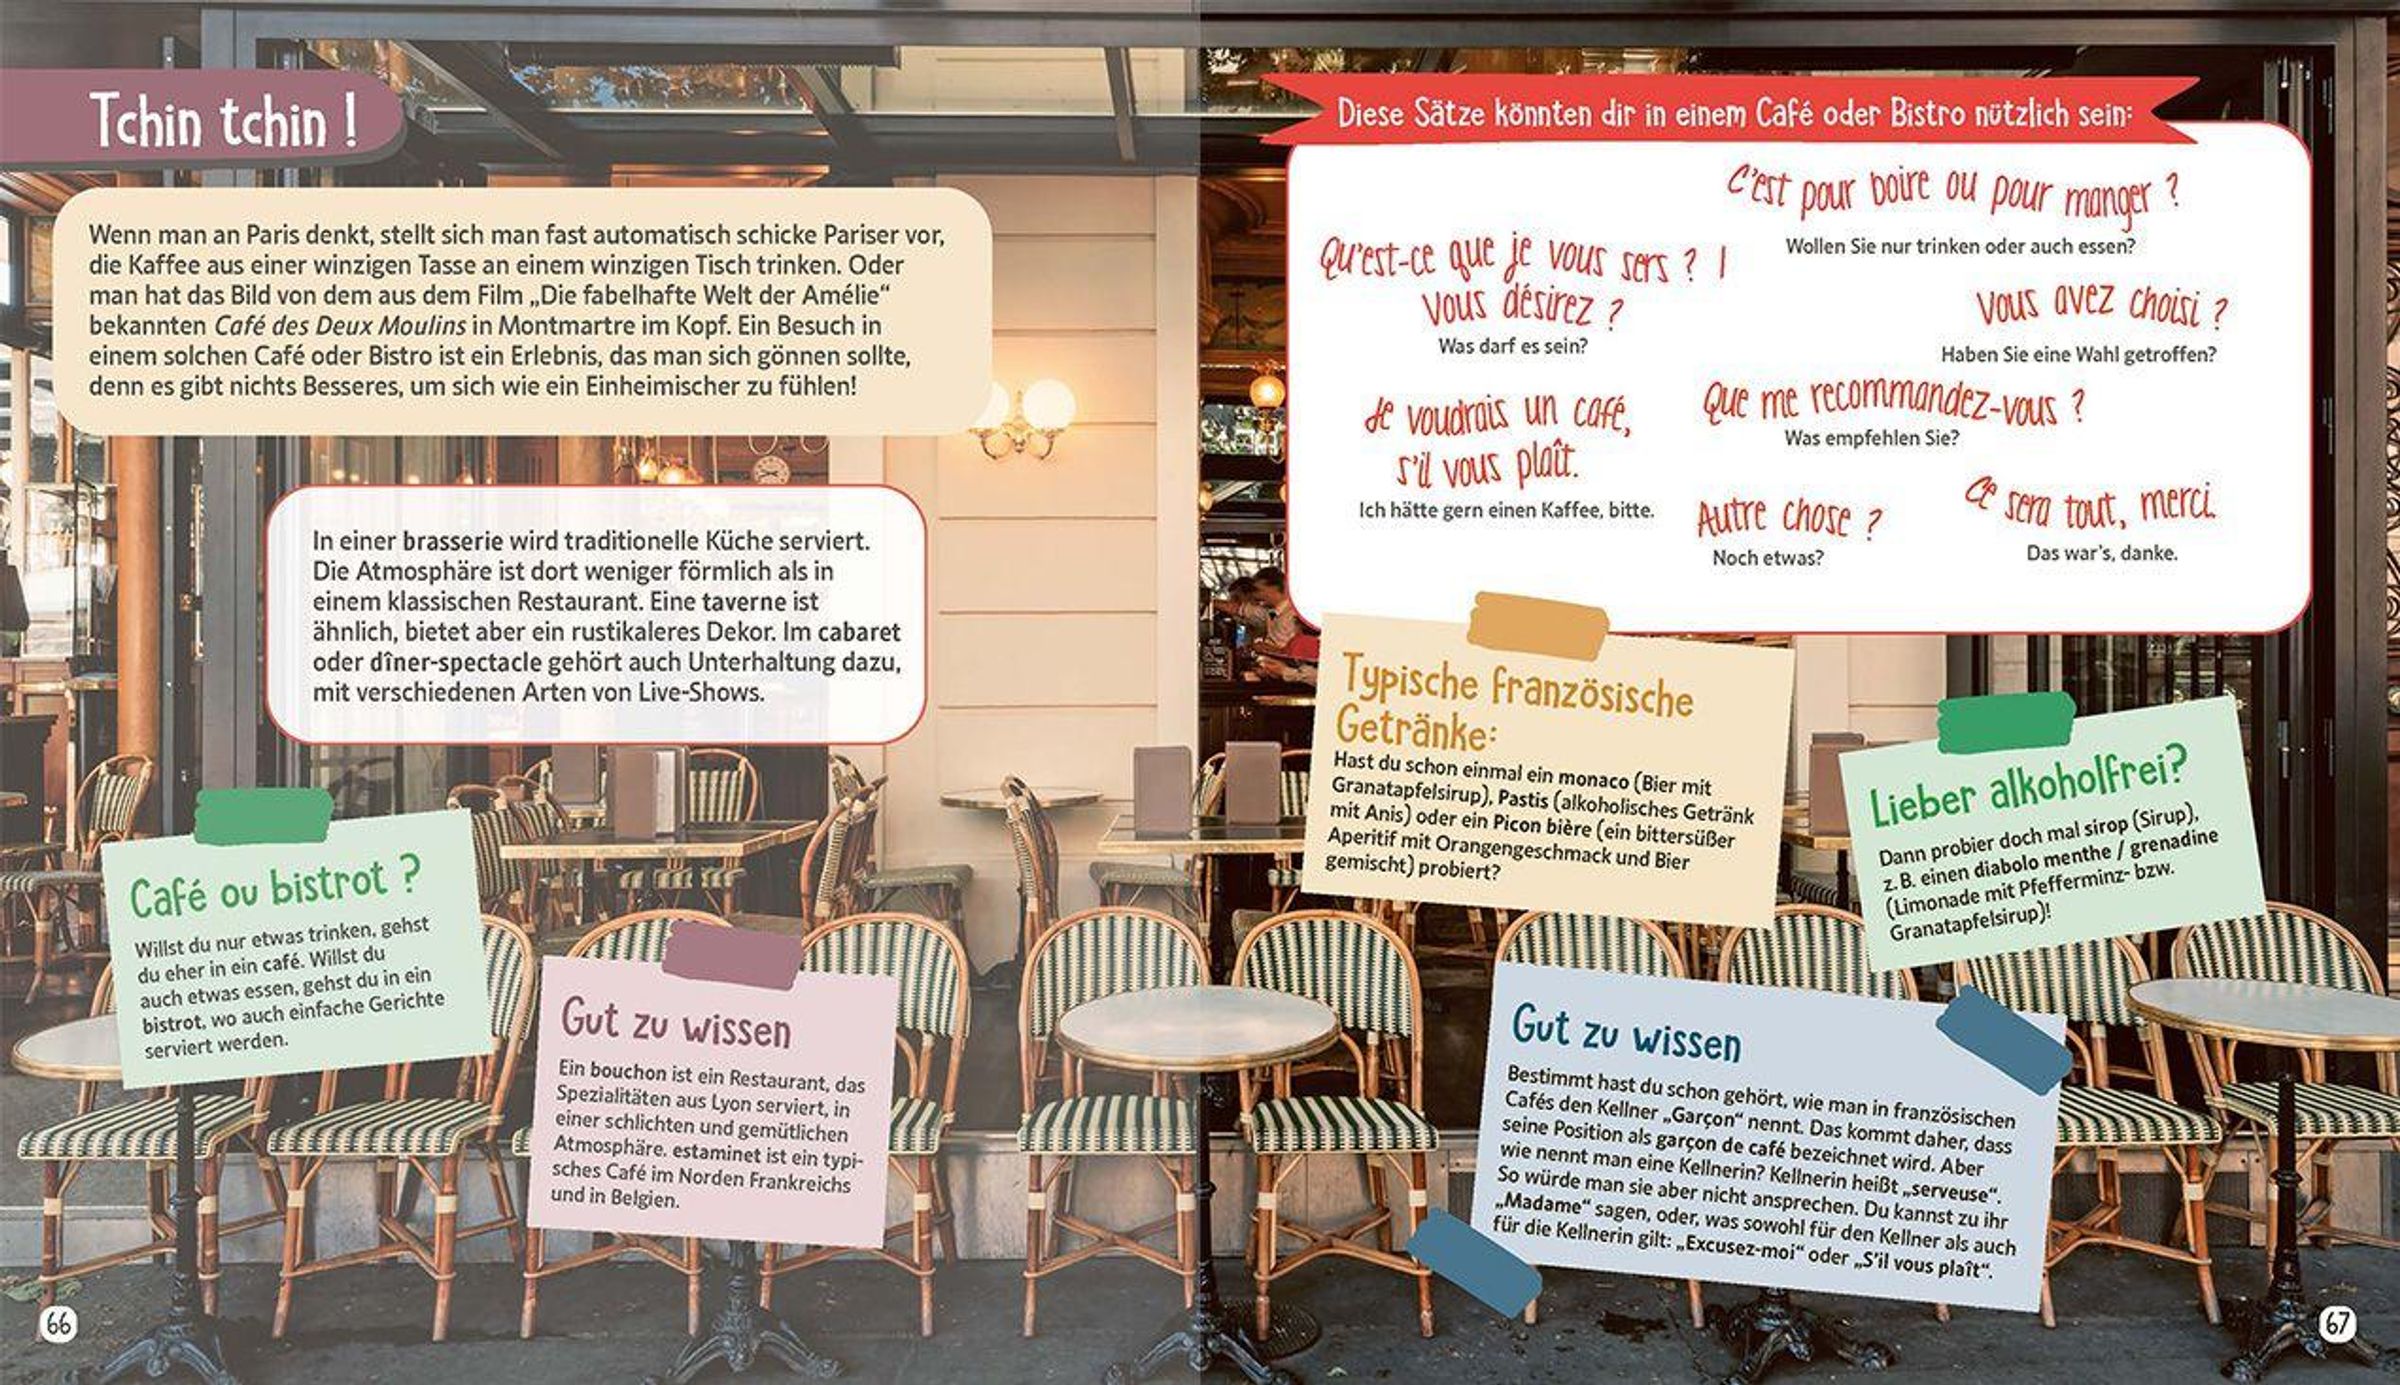 Tchin tchin !
Wenn man an Paris denkt, stellt sich man fast automatisch schicke Pariser vor,
die Kaffee aus einer winzigen Tasse an einem winzigen Tisch trinken. Oder
man hat das Bild von dem aus dem Film „Die fabelhafte Welt der Amélie“
bekannten Café des Deux Moulins in Montmartre im Kopf. Ein Besuch in
einem solchen Café oder Bistro ist ein Erlebnis, das man sich gönnen sollte,
denn es gibt nichts Besseres, um sich wie ein Einheimischer zu fühlen!
In einer brasserie wird traditionelle Küche serviert.
Die Atmosphäre ist dort weniger förmlich als in
einem klassischen Restaurant. Eine taverne ist
ähnlich, bietet aber ein rustikaleres Dekor. Im cabaret
oder dîner-spectacle gehört auch Unterhaltung dazu,
mit verschiedenen Arten von Live-Shows.
Café ou bistrot ?
Willst du nur etwas trinken, gehst
du eher in ein café. Willst du
auch etwas essen, gehst du in ein
bistrot, wo auch einfache Gerichte
serviert werden.
Gut zu wissen
Ein bouchon ist ein Restaurant, das
Spezialitäten aus Lyon serviert, in
einer schlichten und gemütlichen
Atmosphäre. estaminet ist ein typi-
sches Café im Norden Frankreichs
und in Belgien.
66
Diese Sätze könnten dir in einem Café oder Bistro nützlich sein:
C'est pour boire ou pour manger ?
Wollen Sie nur trinken oder auch essen?
Qu'est-ce que je vous sers ? /
Vous désirez ?
Was darf es sein?
Vous avez choisi ?
Haben Sie eine Wahl getroffen?
Je voudrais un café,
s'il vous plaît.
Ich hätte gern einen Kaffee, bitte.
Que me recommandez-vous ?
Was empfehlen Sie?
Autre chose ?
Noch etwas?
Ce sera tout, merci.
Das war's, danke.
Typische französische
Getränke:
Hast du schon einmal ein monaco (Bier mit
Granatapfelsirup), Pastis (alkoholisches Getränk
mit Anis) oder ein Picon bière (ein bittersüßer
Aperitif mit Orangengeschmack und Bier
gemischt) probiert?
Lieber alkoholfrei?
Dann probier doch mal sirop (Sirup),
z. B. einen diabolo menthe / grenadine
(Limonade mit Pfefferminz- bzw.
Granatapfelsirup)!
Gut zu wissen
Bestimmt hast du schon gehört, wie man in französischen
Cafés den Kellner „Garçon“ nennt. Das kommt daher, dass
seine Position als garçon de café bezeichnet wird. Aber
wie nennt man eine Kellnerin? Kellnerin heißt „serveuse“.
So würde man sie aber nicht ansprechen. Du kannst zu ihr
„Madame“ sagen, oder, was sowohl für den Kellner als auch
für die Kellnerin gilt: „Excusez-moi“ oder „S'il vous plaît“.
67